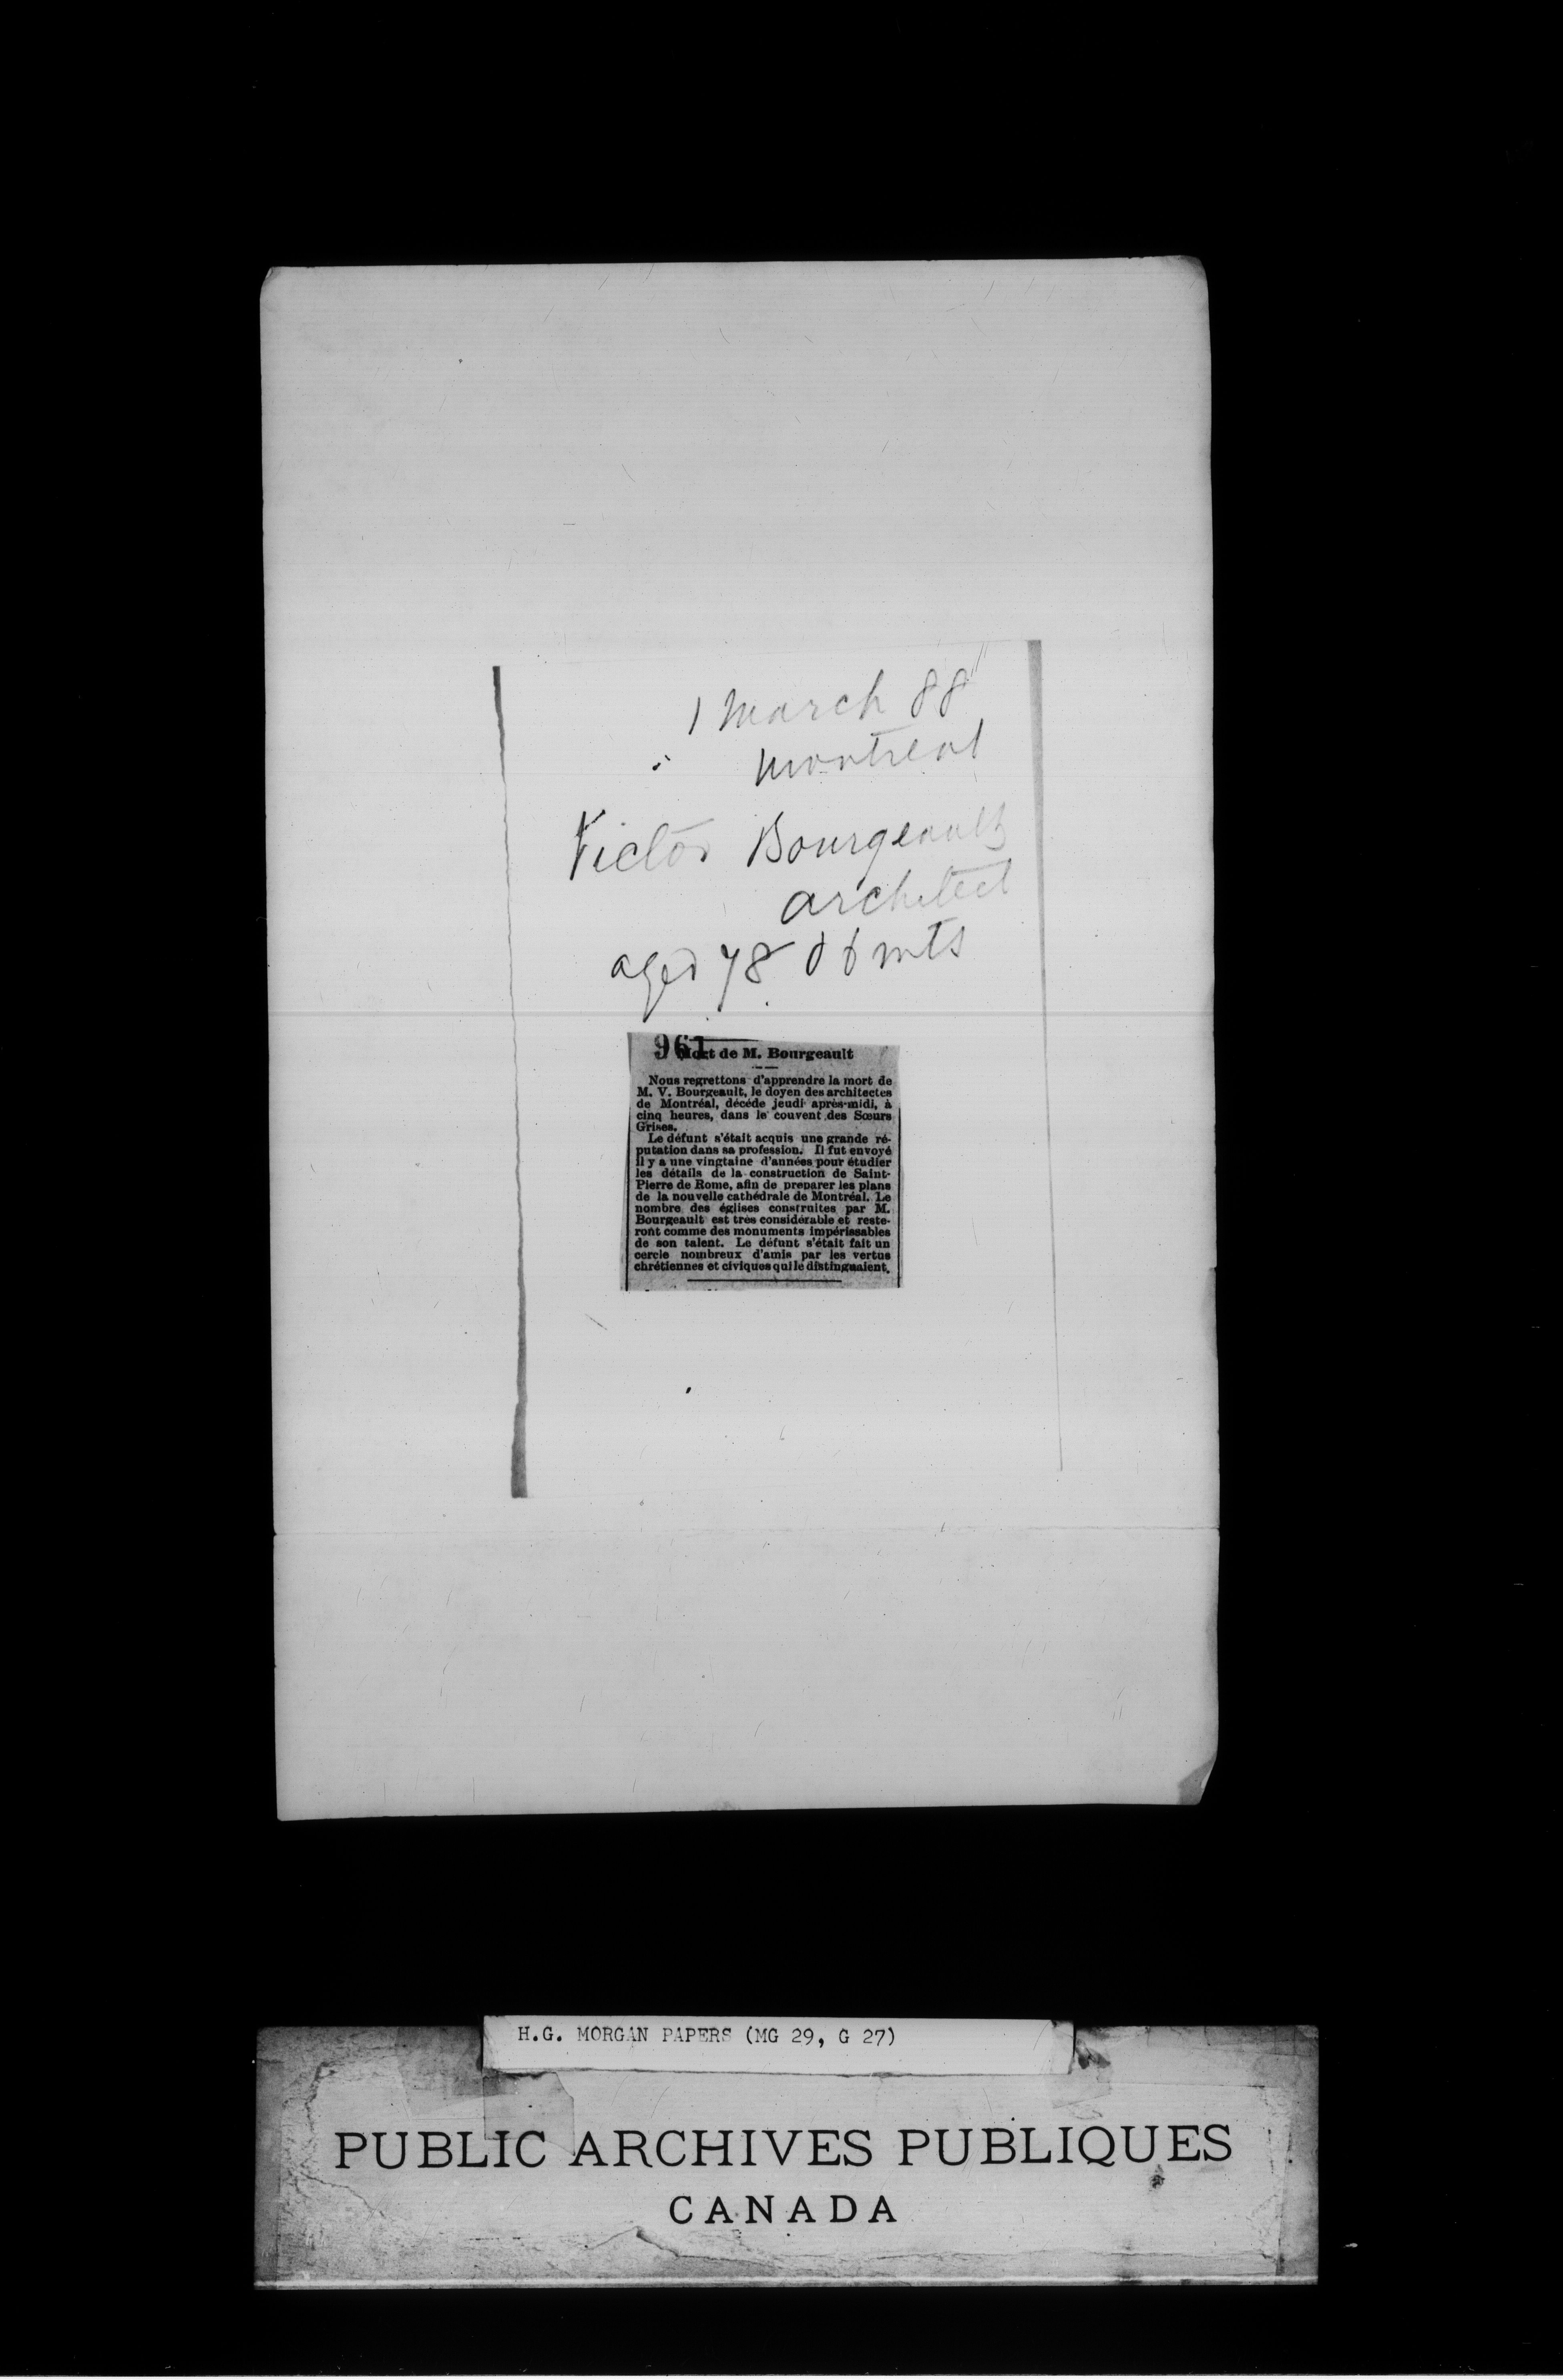 1 March 88
Montreal
Victor Bourgeault
architect
aged 78 & 6 mts
961
Mort de M. Bourgeault
Nous regrettons d'apprendre la mort de
M. V. Bourgeault, le doyen des architectes
de Montréal, décédé jeudi après-midi, à
cinq heures, dans le couvent des Sœurs
Grises.
Le défunt s'était acquis une grande ré-
putation dans sa profession. Il fut envoyé
il y a une vingtaine d'années pour étudier
les détails de la construction de Saint-
Pierre de Rome, afin de preparer les plans
de la nouvelle cathédrale de Montréal. Le
nombre des églises construites par M.
Bourgeault est très considérable et reste-
ront comme des monuments impérissables
de son talent. Le défunt s'était fait un
cercle nombreux d'amis par les vertus
chrétiennes et civiques qui le distinguaient.
H.G. MORGAN PAPERS (MG 29, G 27)
PUBLIC ARCHIVES PUBLIQUES
CANADA